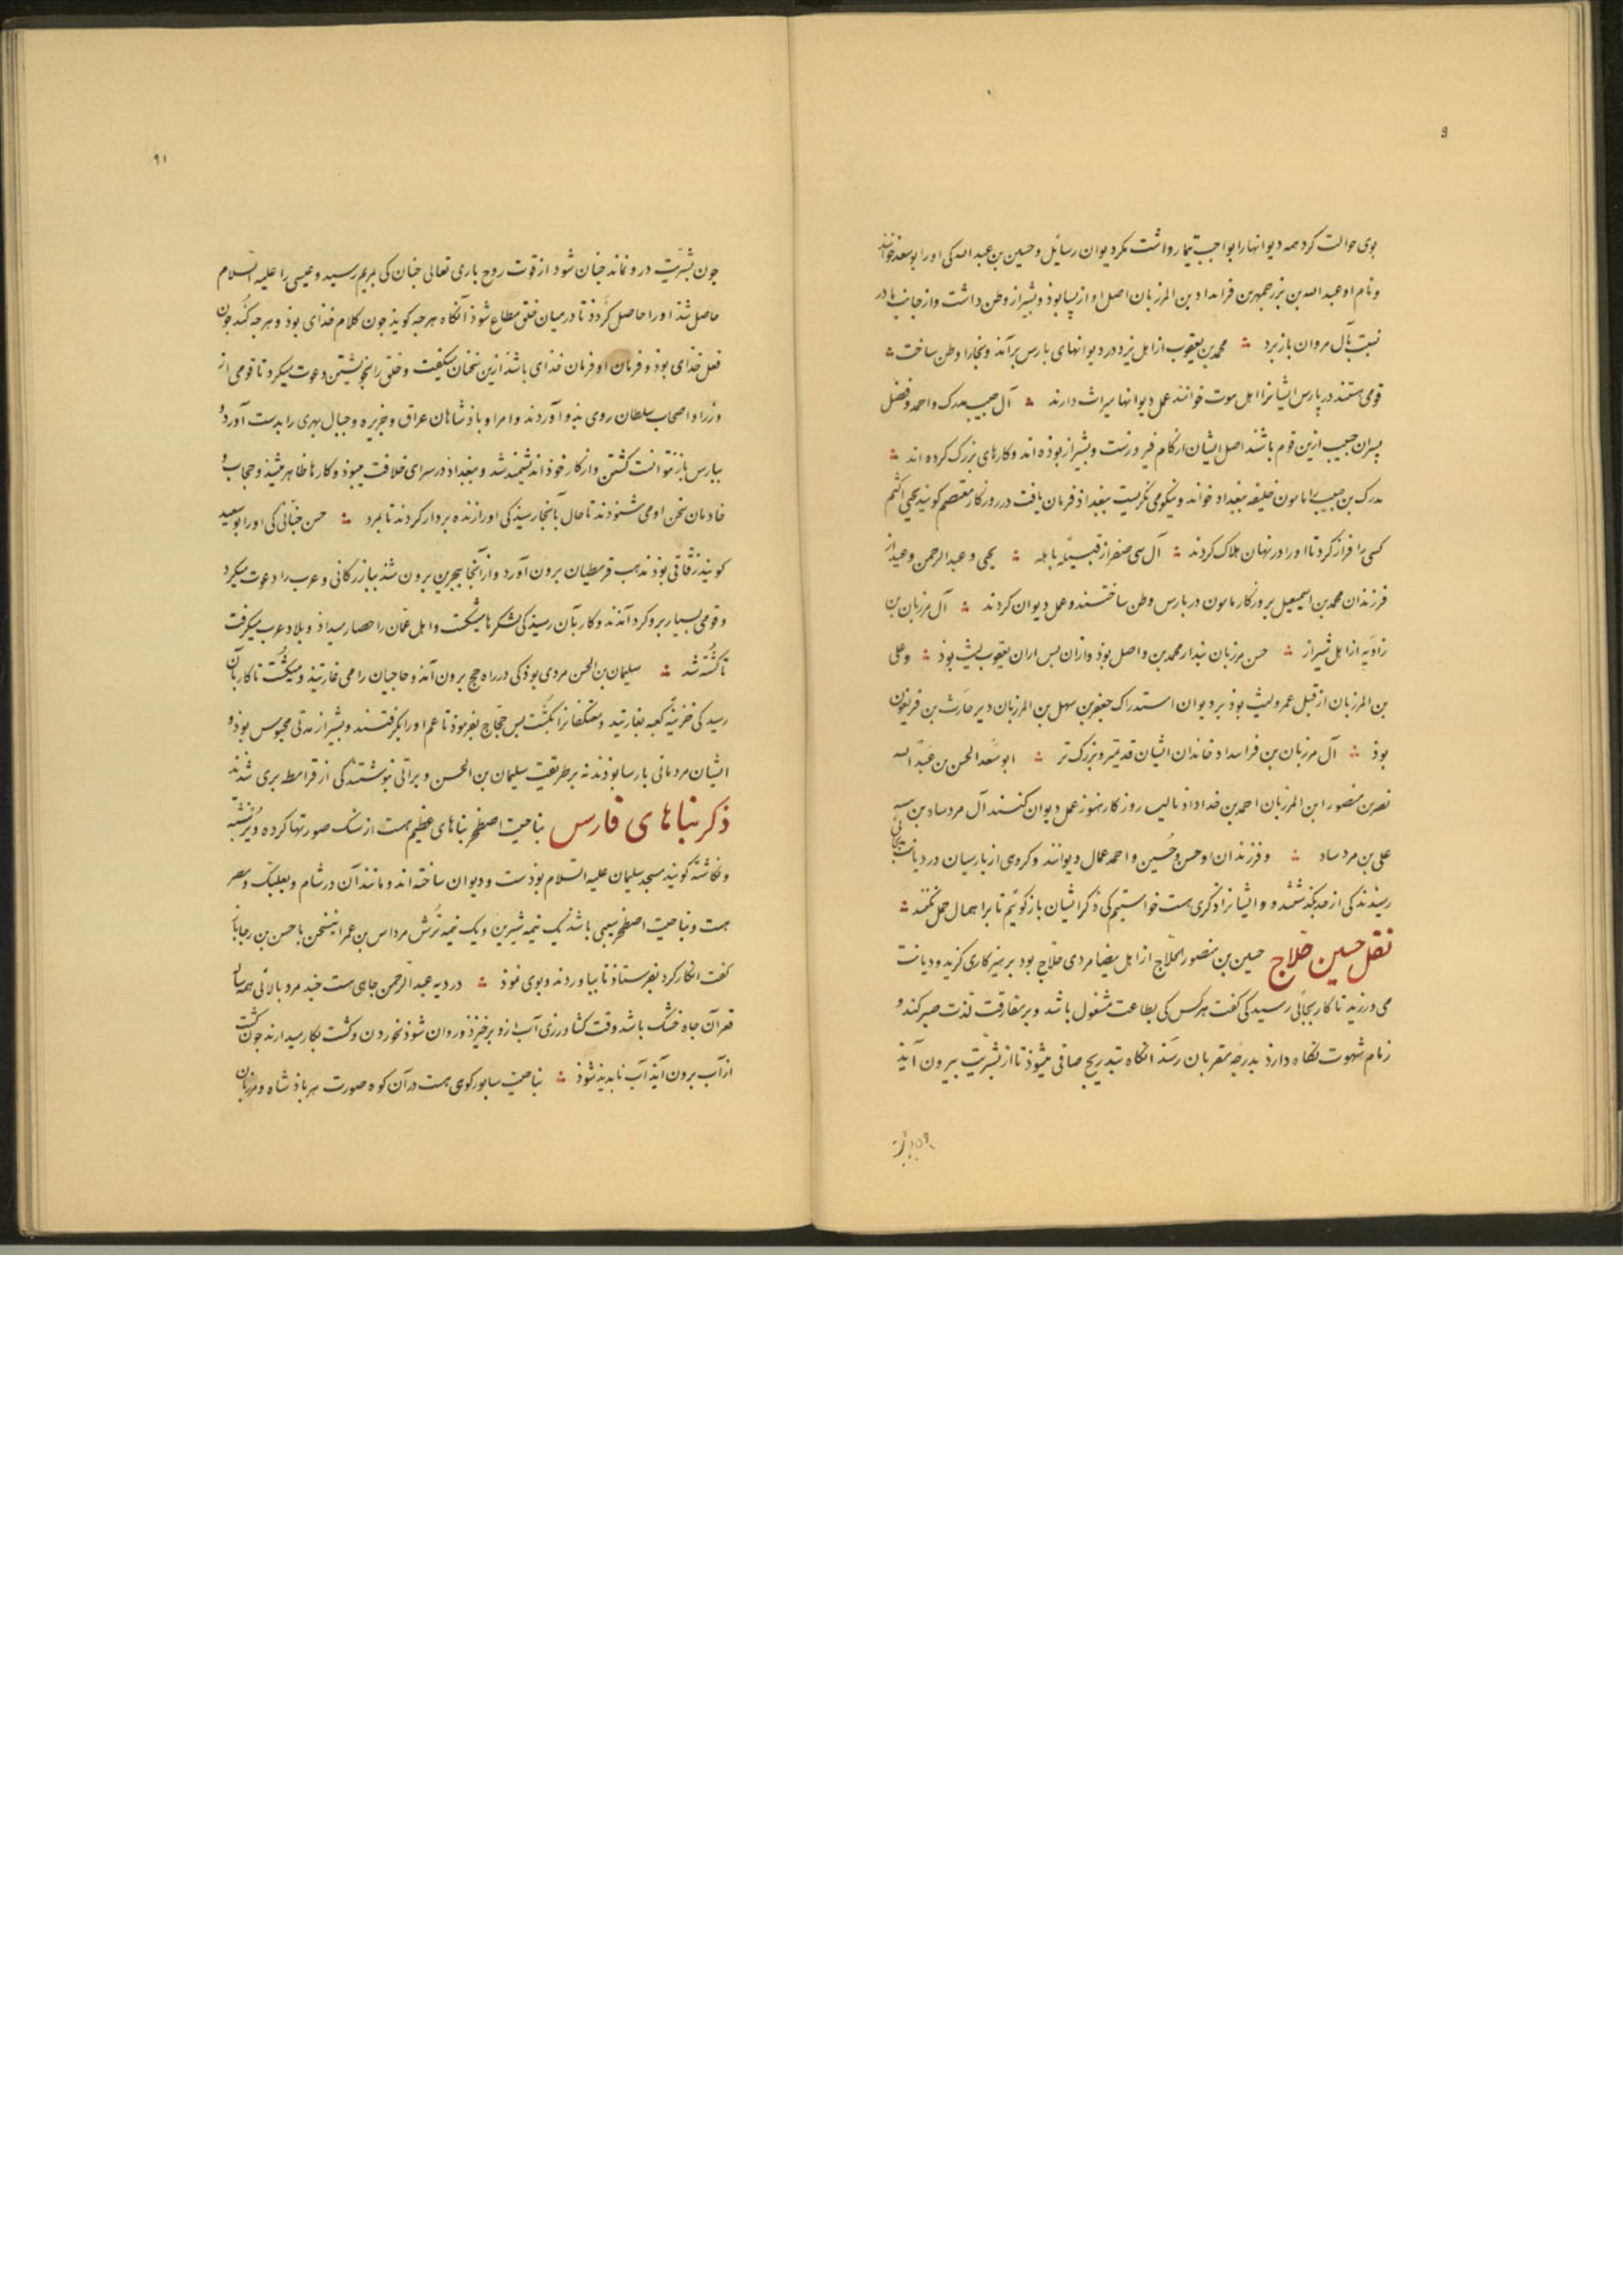 ۹
بوی حوالت کرد همه دیوانها را بواجب تیمار داشت مکر دیوان رسایل و حسین بن عبد الله کی اورا ابوسعد خوانند
و نام او عبد الله بن بزرجمهر بن بن المرزبان اصل او از بسا بوذ و بشیراز وطن داشت و از جانب مادر
نسبت بآل مروان باز برد ؞ محمد بن یعقوب از اهل یزد در دیوانهای بارس برآمذ و ببخارا وطن ساخت ؞
قومی هستند در پارس ایشانرا اهل بیوت خوانند عمل دیوانها میراث دارند ؞ آل حبیب مدرک و احمد و فضل
پسران حبیب ازین قوم باشند اصل ایشان از کام فیروزست و بشیراز بوذه اند و کارهای بزرک کرده اند ؞
مدرک بن حبیب را مامون خلیفه ببغداد خواند و نیکو می نکریست ببغداذ فرمان یافت در روزکار معتصم کویند یحیی اکثم
کسی را فراز کرد تا اورا در نهان هلاک کردند ؞ آل ابی صفر از قبیلهٔ باهله ؞ یحیی و عبد الرحمن و عبد الله از
فرزندان محمد بن اسمعیل بروزکار مامون در بارس وطن ساختند و عمل دیوان کردند ؞ آل مرزبان بن
زادیه از اهل شیراز ؞ حسن مرزبان بندار محمد بن واصل بوذ و از ان بس از ان یعقوب لیث بوذ ؞ و علی
بن المرزبان از قبل عمرو لیث بوذ بر دیوان استدراک جعفر بن سهل بن المرزبان دبیر حارث بن فریغون
بوذ ؞ آل مرزبان بن خاندان ایشان قدیمتر و بزرک تر ؞ ابو سعد الحسن بن عبد الله
نصر بن منصور ابن المرزبان احمد بن خداداذ تا این روزکار هنوز عمل دیوان کنند آل مردشاد بن
علی بن مردشاد ؞ و فرزندان او حسن و حسین و احمد عمال دیوانند و کروهی از بارسیان در دیانت بجائی
رسیذند کی از حد بکذشتند و ایشانرا ذکری هست خواستیم کی ذکر ایشان باز کوئیم تا بر اهمال حمل نکنند ؞
نقل حسین حلاج حسین بن منصور الحلاج از اهل بیضا مردی حلاج بود پرهیزکاری کزید و دیانت
می ورزید تا کار بجائی رسید کی کفت هرکس کی بطاعت مشغول باشد و بر مفارقت لذت صبر کند و
زمام شهوت نکاه دارذ بدرجه مقربان رسَد انکاه بتدریج صافی میشوذ تا از بشریت بیرون آیذ
۹۱
جون بشریت درو نماند جنان شود از قوت روح باری تعالی جنان کی بمریم رسید و عیسی را علیه السلام
حاصل شذ اورا حاصل کردذ تا در میان خلق مطاع شوذ آنکاه هرجه کویذ جون کلام خذای بوذ و هرجه کُنَد جون
فعل خذای بوذ و فرمان او فرمان خذای باشذ ازین سخنان میکفت و خلق را بخویشتن دعوت میکرد تا قومی از
وزرا و اصحاب سلطان روی بذو آوردند و امرا و باذشاهان عراق و جزیره و جبال بهری را بدست آورد و
ببارس باز نتوانست کشتن و از کار خوذ اندیشمند شد و ببغداذ در سرای خلافت میبوذ و کارها ظاهر میشذ و حجاب و
خادمان سخن او می شنوذند تا حال بآنجا رسیذ کی اورا زنده بردار کردند تا بمرد ؞ حسن جنّابی کی اورا ابو سعید
کویند رقاقی بوذ مذهب قرمطیان برون آورد و از آنجا ببحرین برون شذ ببازرکانی و عرب را دعوت میکرد
و قومی بسیار برو کرد آمذند و کار بآن رسیذ کی لشکرها میشکست و اهل عمان را حصار میداذ و بلاد عرب میکرفت
تا کُشته شد ؞ سلیمان بن الحسن مردی بوذ کی در راه حج برون آمذ و حاجیان را می غارتیذ و میکُشت تا کار بآن
رسید کی خزینهٔ کعبه بغارتید و معتکفانرا بکُشت بس حجّاج بفرموذ تا عم اورا بکرفتند و بشیراز مدتی محبوس بوذ و
ایشان مردمانی پارسا بوذند نه برطریقت سلیمان بن الحسن و براتی نبوشتند کی از قرامطه بری شذند
ذکر بناهای فارس بناحیت اصطخر بناهای عظیم هست از سنک صورتها کرده و بر نبشته
و نکاشته کویند مسجد سلیمان علیه السلام بوذست و دیوان ساخته اند و مانند آن در شام و بعلبک و مصر
هست و بناحیت اصطخر سیبی باشد یک نیمه شیرین و یک نیمه ترش مرداس بن عمر اینسخن با حسن بن رجا
کفت انکار کرد بفرستاذ تا بیاوردند و بوی نموذ ؞ در دیه عبد الرحمن جاهی هست جند مرد بالائی همه ساله
قعر آن جاه خشک باشد وقت کشاورزی آب ازو برخیزذ و روان شوذ بخوردن و کشت بکار میدارند جون کشت
از آب برون آیذ آب نابدید شوذ ؞ بناحیت سابور کوهی هست در آن کوه صورت هر باذشاه و مرزبان